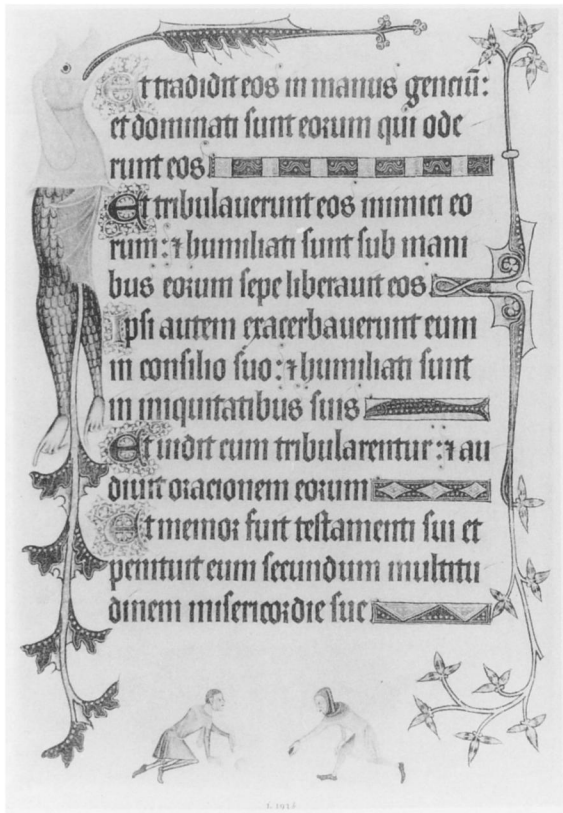 Et tradidit eos in manus genciū:
et dominati sunt eorum qui ode
runt eos
Et tribulauerunt eos inimici eo
rum: ⁊ humiliati sunt sub mani
bus eorum sepe liberauit eos
Ipsi autem exacerbauerunt eum
in consilio suo: ⁊ humiliati sunt
in iniquitatibus suis
Et uidit cum tribularentur: ⁊ au
diuit oracionem eorum
Et memor fuit testamenti sui et
penituit eum secundum multitu
dinem misericordie sue